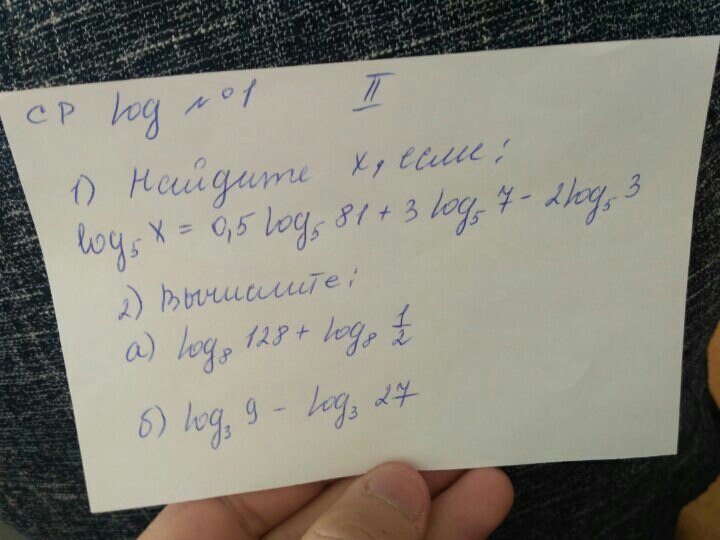 СР log №1 II
1) Найдите x, если:
log₅ x = 0,5 log₅ 81 + 3 log₅ 7 - 2 log₅ 3
2) Вычислите:
а) log₈ 128 + log₈ 1/2
б) log₃ 9 - log₃ 27